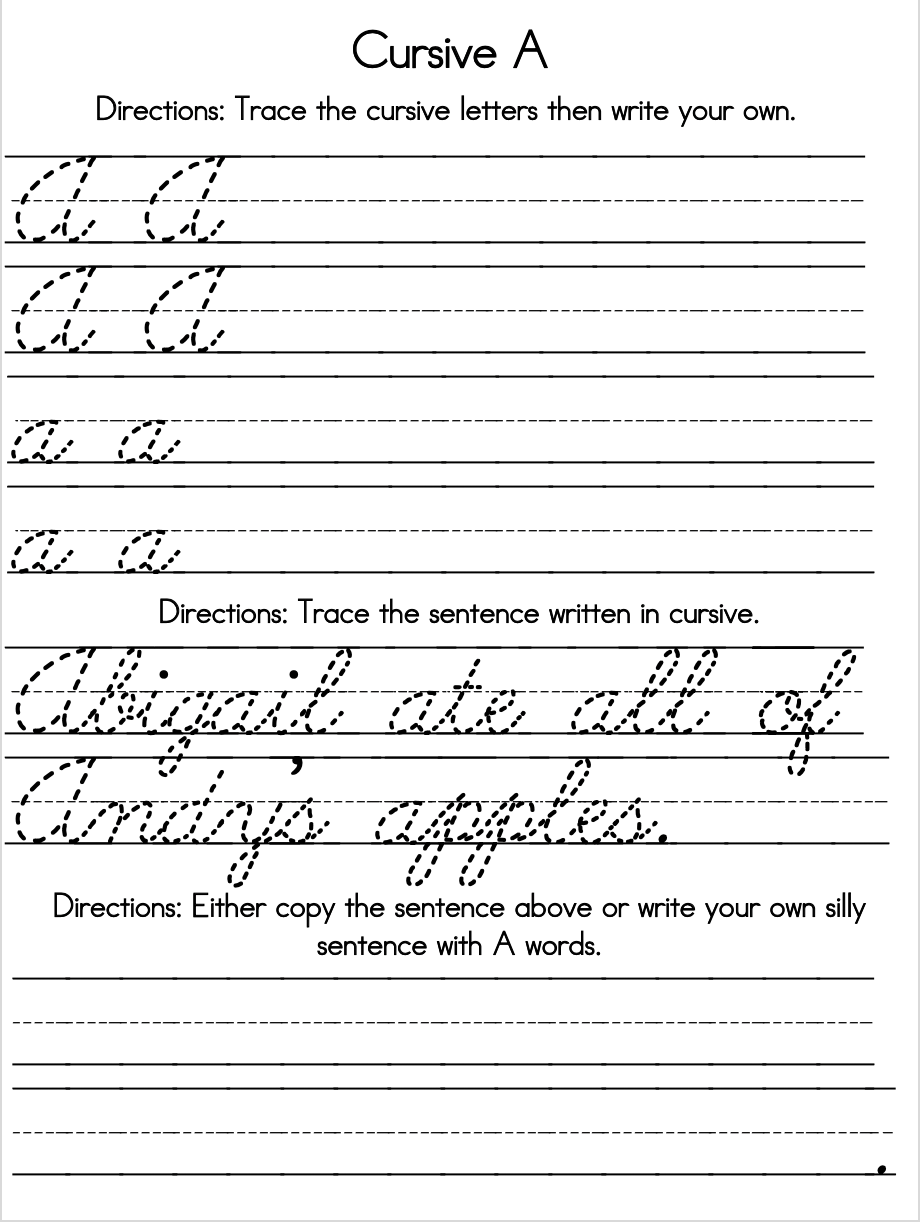 Cursive A
Directions: Trace the cursive letters then write your own.
A A
A A
a a
a a
Directions: Trace the sentence written in cursive.
Abigail ate all of
Andy's apples.
Directions: Either copy the sentence above or write your own silly
sentence with A words.
.